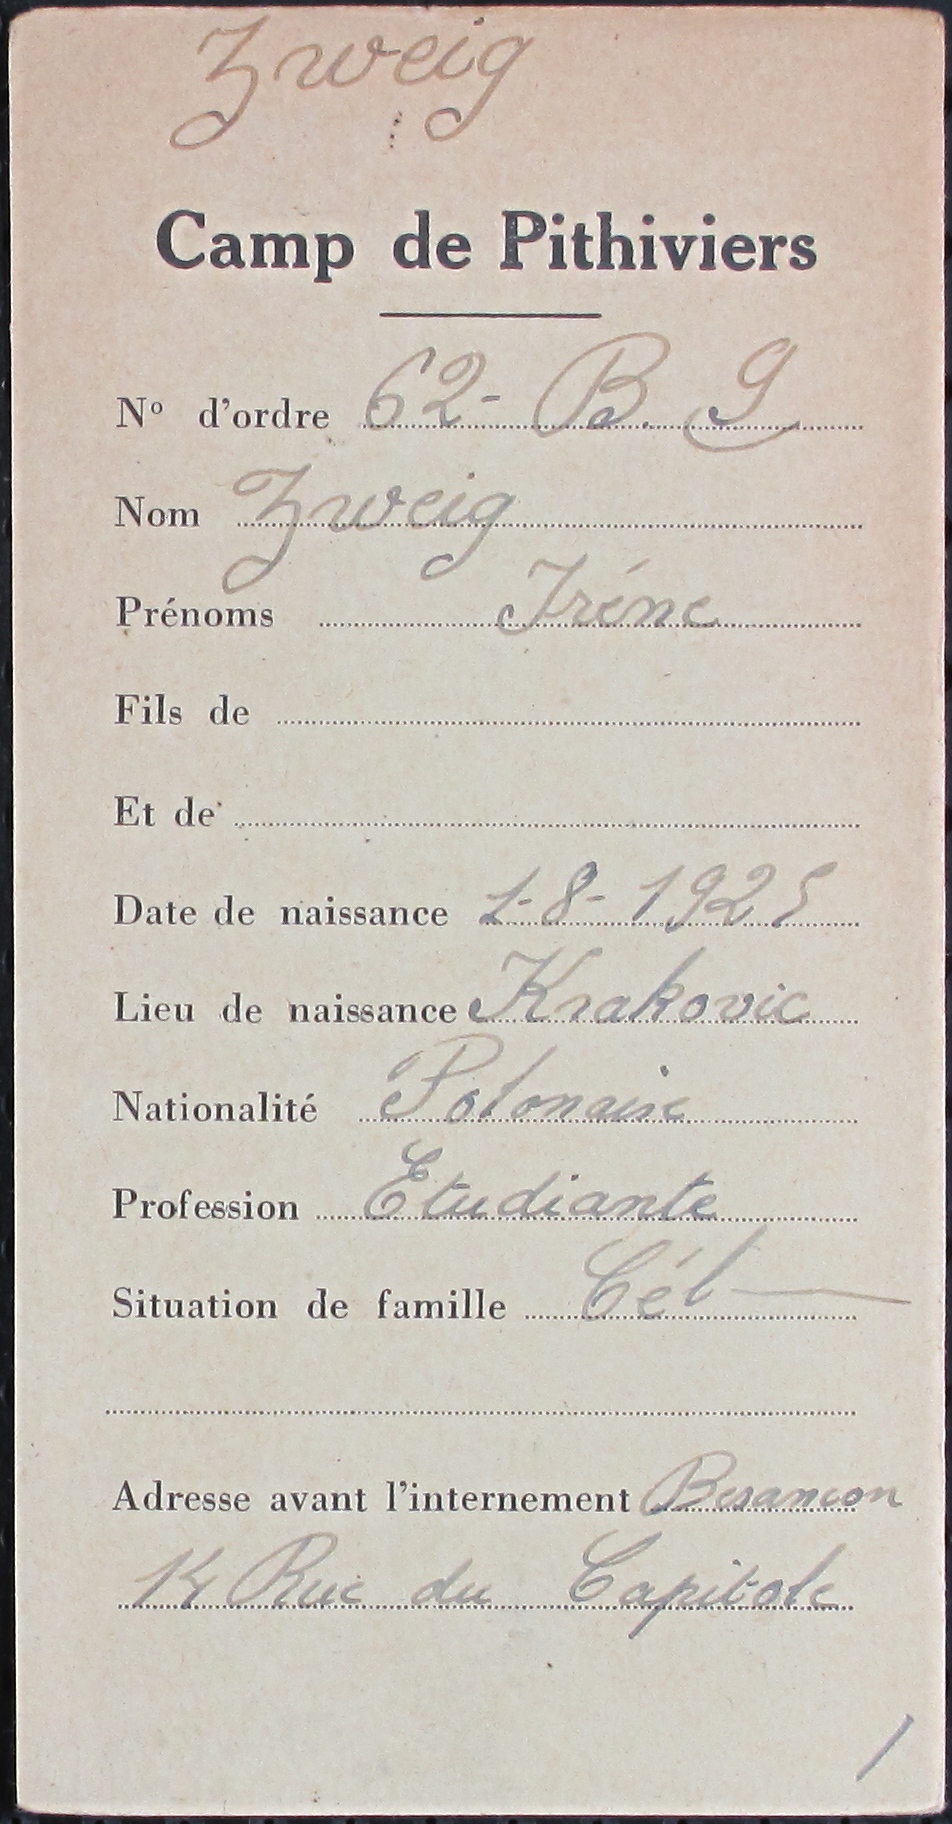 Zweig
Camp de Pithiviers
Nº d'ordre 62- B. 9
Nom Zweig
Prénoms Iréne
Fils de
Et de
Date de naissance 1-8-1925
Lieu de naissance Krakovie
Nationalité Polonaise
Profession Etudiante
Situation de famille Cél
Adresse avant l'internement Besancon
14 Rue du Capitole